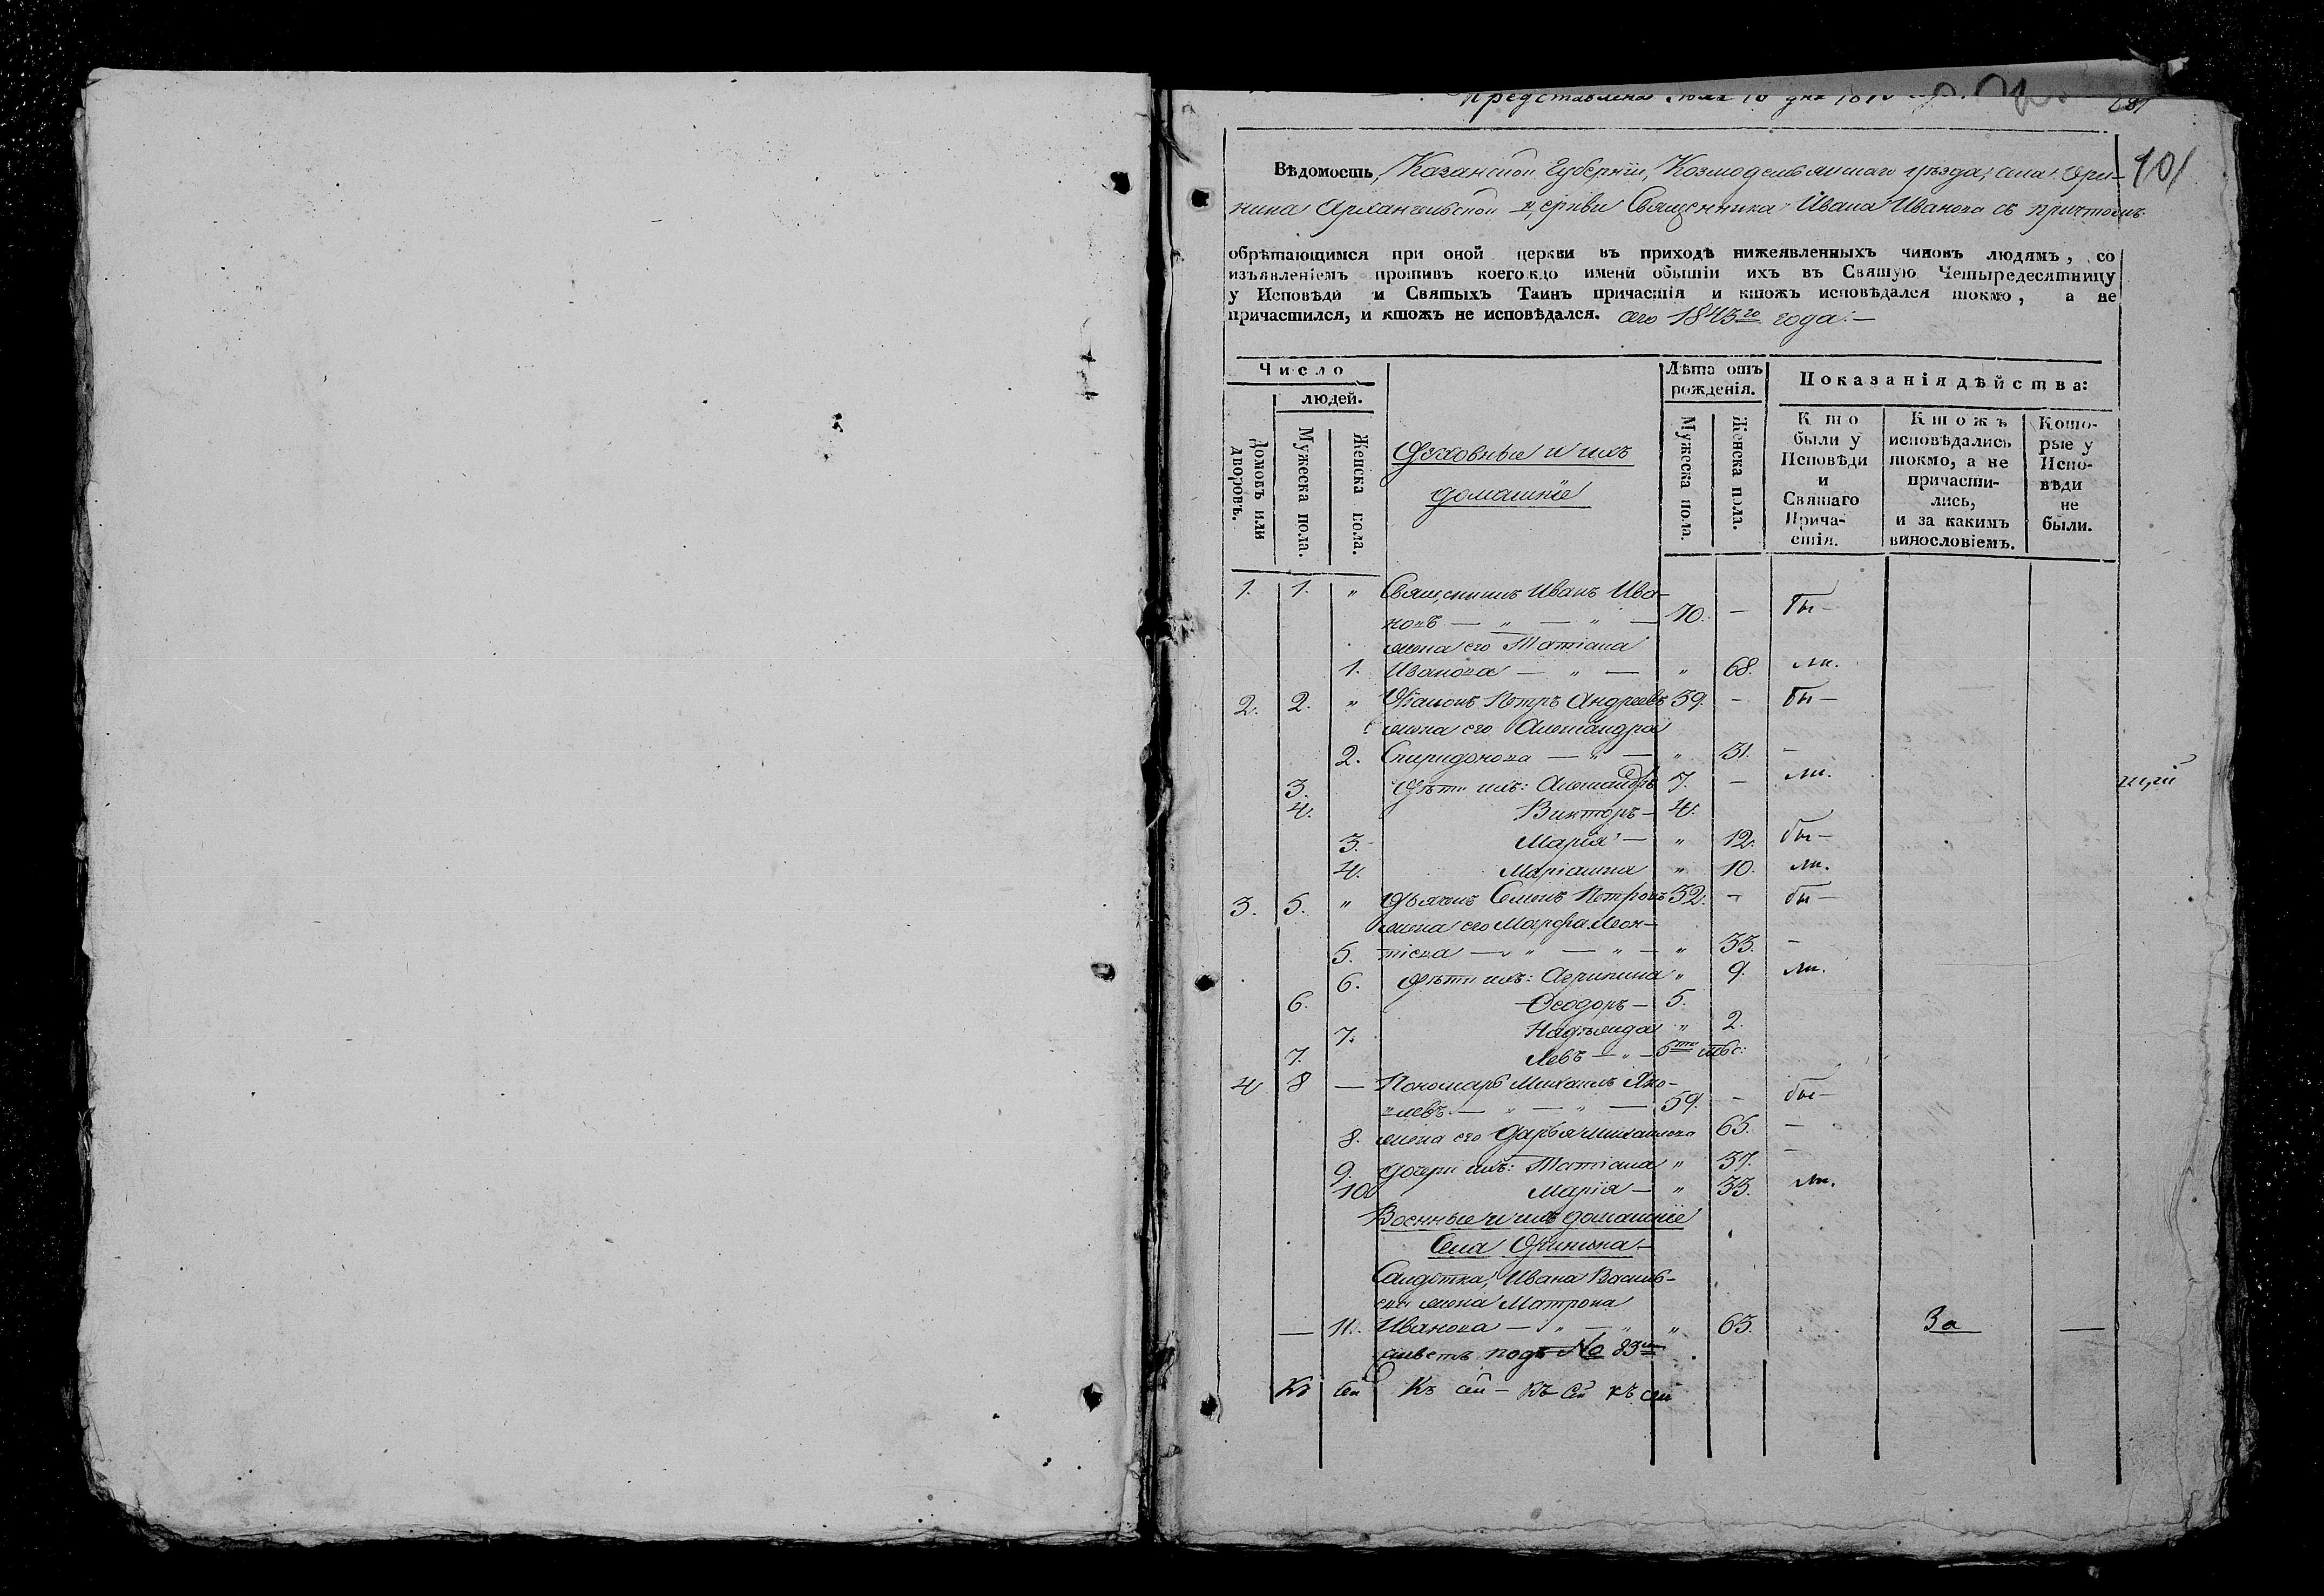 Представлена
281
101
Вѣдомость, Казанской Губерніи, Козмодемьянскаго уѣзда, села Ори-
нина Архангельской церкви Священника Ивана Иванова съ причтомъ
обрѣтающимся при оной церкви въ приходѣ нижеявленныхъ чиновъ людямъ, со
изъявленіемъ противъ коегождо имени бытіи ихъ въ Святую Четыредесятницу
у Исповѣди и Святыхъ Таинъ причастія и ктожъ исповѣдался токмо, а не
причастился, и ктожъ не исповѣдался. сего 1843го года.—
Число
людей.
Домовъ или дворовъ.
Мужеска пола.
Женска пола.
Духовные и ихъ
домашніе
Лѣта отъ рожденія.
Мужеска пола.
Женска пола.
Показанія дѣйства:
Кто были у Исповѣди и Святаго Прича- стія.
Ктожъ исповѣдались токмо, а не причасти- лись, и за какимъ винословіемъ.
Кото- рые у Испо- вѣди не были.
1. 1. " Священникъ Иванъ Ива-
новъ — " — " — 70. — бы —
жена его Татіана
1. Иванова — " — " 68. ли.
2. 2. " Діаконъ Петръ Андреевъ 39. — бы —
жена его Александра
2. Спиридонова — " — " 31. —
3. Дѣти ихъ: Александръ 7. — ли.
4. Викторъ — 4.
3. Марія — " 12. бы —
4. Маріанна " 10. ли.
3. 5. " Дьячекъ Семенъ Петровъ 32. — бы —
жена его Марфа Леон-
5. тіева — " — " — " 33. —
6. Дѣти ихъ: Агрипина " 9. ли.
6. Ѳеодоръ — 5.
7. Надежда " 2.
7. Левъ — " — 5ти мѣс:
4 8 — Пономарь Михаилъ Яко-
влевъ — " — " — 59. — бы —
8. жена его Дарья Михайлова 63. —
9. Дочери ихъ: Татіана " 37. —
10 Марія — " 33. ли.
Военные и ихъ домашніе
Села Оринина —
Солдатка, Ивана Василь-
ева жена Матрона
— 11. Иванова — " — " " 63. За —
живетъ подъ № 83м
Къ сей Къ сей — къ сей къ сей
щей